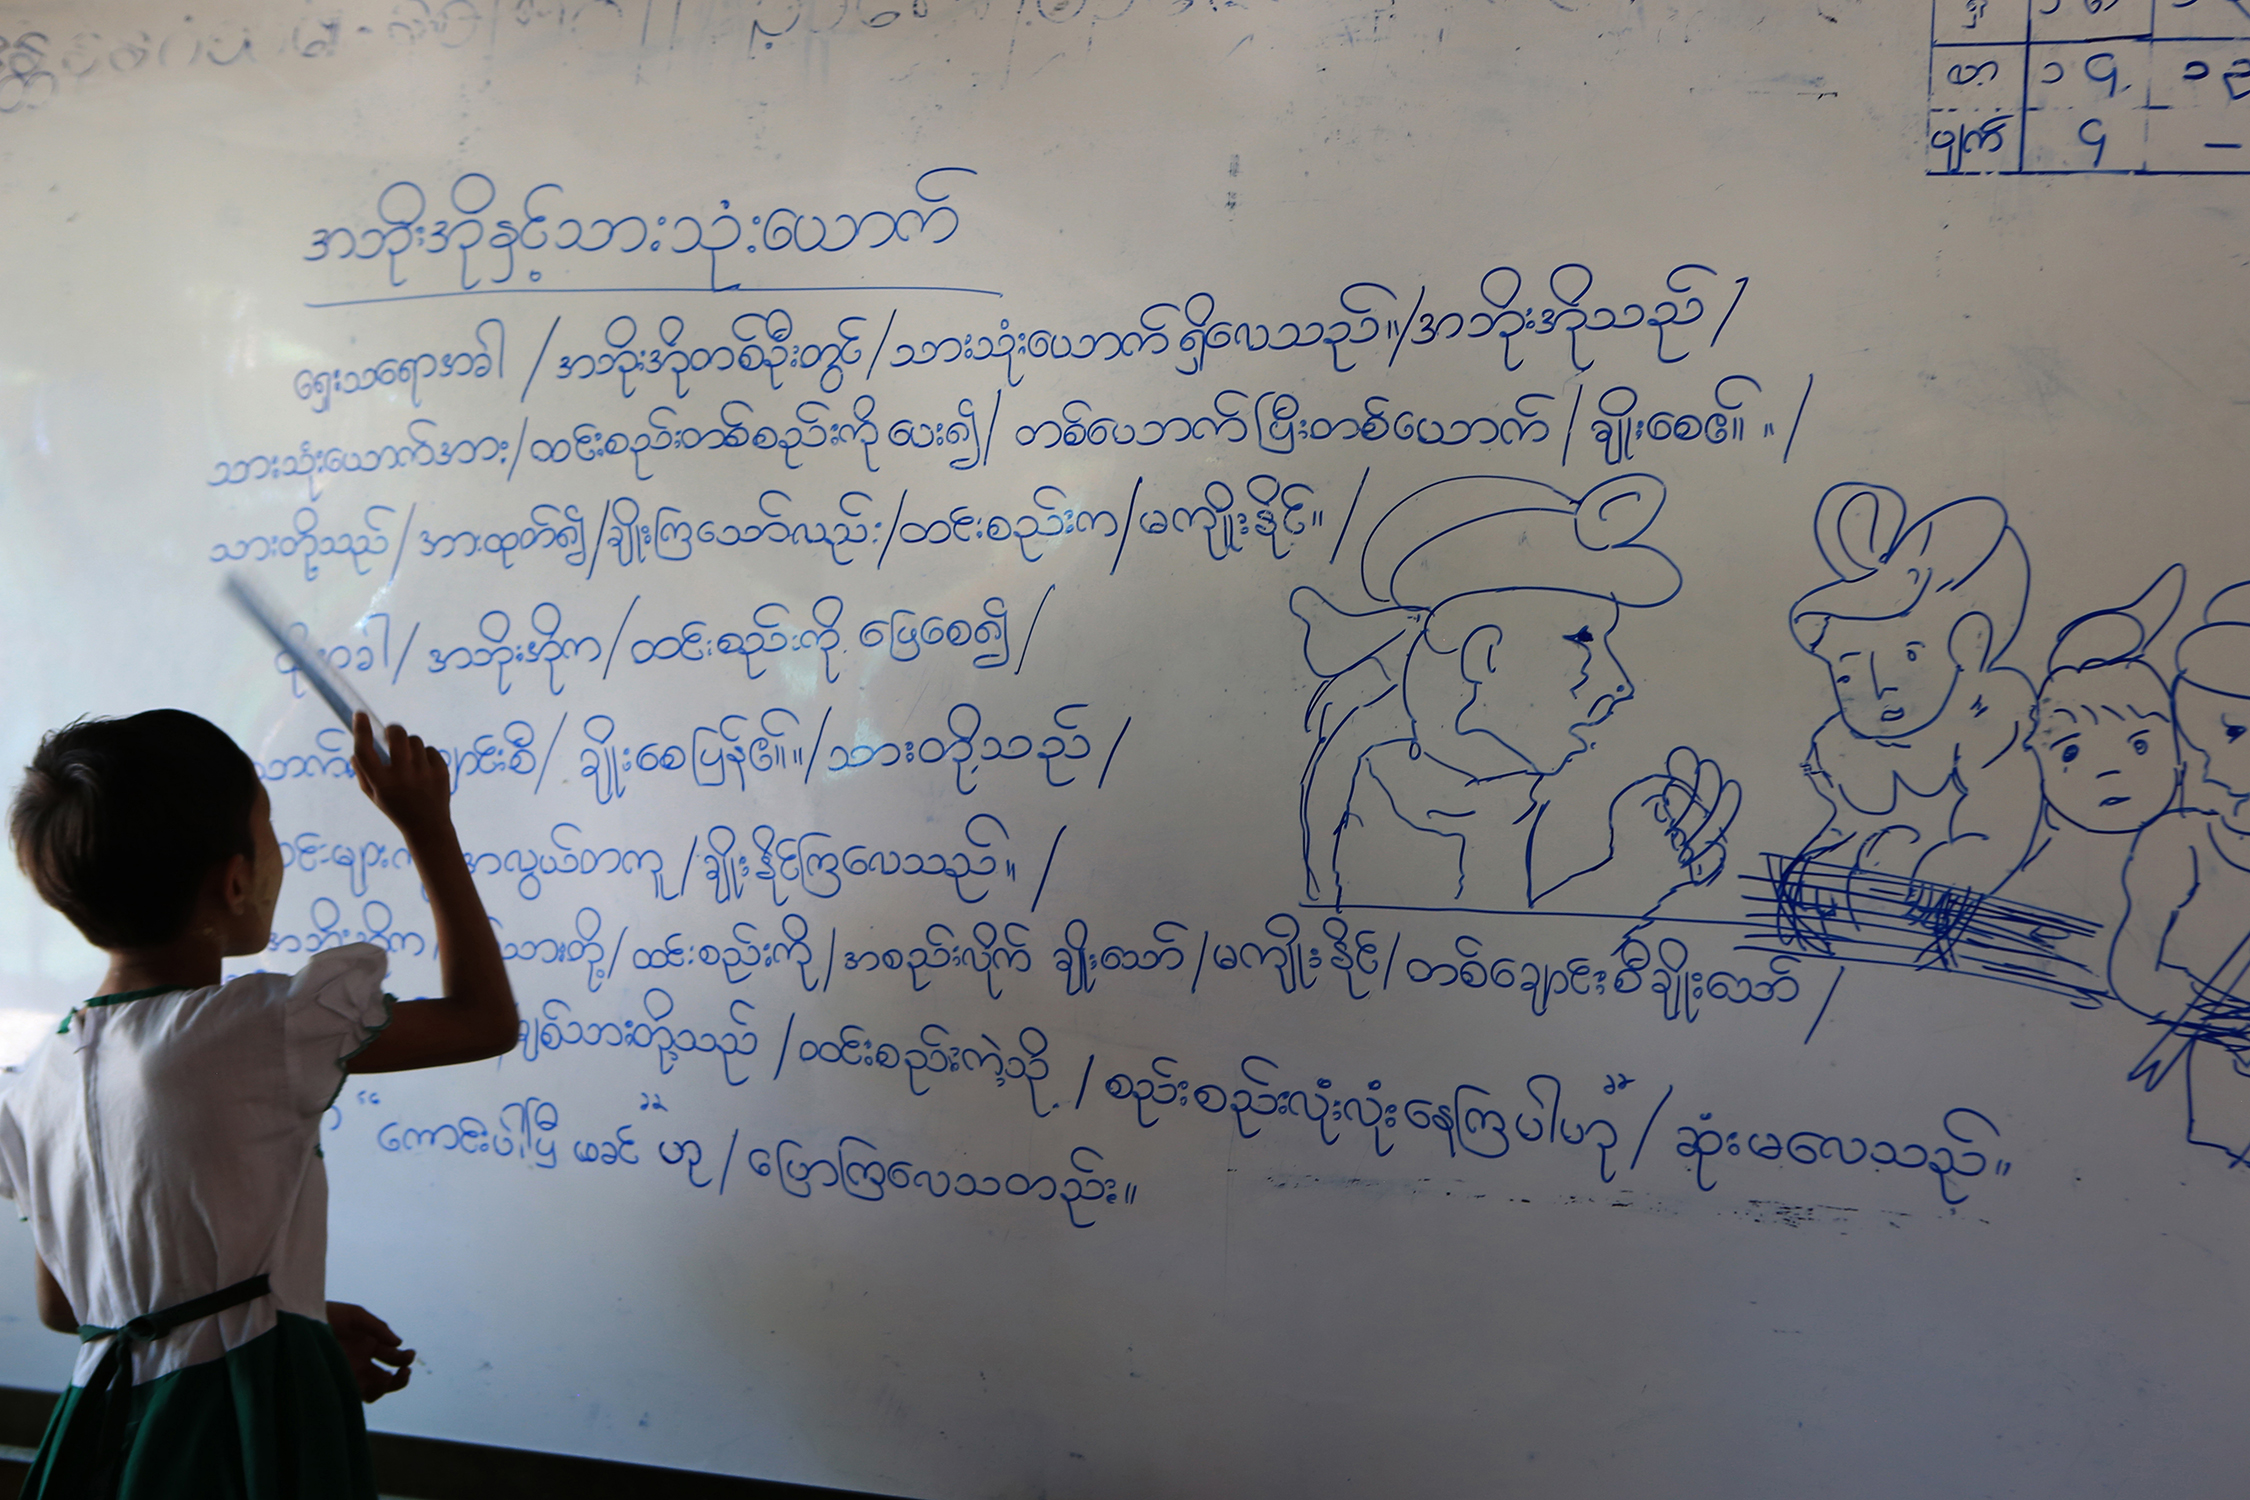 လာ ၁၄
ပျက် ၄ –
အဘိုးအိုနှင့်သားသုံးယောက်
ရှေးသရောအခါ / အဘိုးအိုတစ်ဦးတွင် / သားသုံးယောက် ရှိလေသည်။ / အဘိုးအိုသည် /
သားသုံးယောက်အား / ထင်းစည်းတစ်စည်းကို ပေး၍ / တစ်ယောက်ပြီးတစ်ယောက် / ချိုးစေ၏။ /
သားတို့သည် / အားထုတ်၍ / ချိုးကြသော်လည်း / ထင်းစည်းက / မကျိုးနိုင်။ /
/ အဘိုးအိုက / ထင်းစည်းကို ဖြေစေ၍ /
ချောင်းစီ / ချိုးစေပြန်၏။ / သားတို့သည် /
အလွယ်တကူ / ချိုးနိုင်ကြလေသည်။ /
အဘိုးအိုက / သားတို့ / ထင်းစည်းကို / အစည်းလိုက် ချိုးသော် / မကျိုးနိုင် / တစ်ချောင်းစီချိုးသော် /
ချစ်သားတို့သည် / ထင်းစည်းကဲ့သို့ / စည်းစည်းလုံးလုံးနေကြပါဟု" / ဆုံးမလေသည်။
"ကောင်းပါပြီ ဖခင်" ဟု / ပြောကြလေသတည်း။